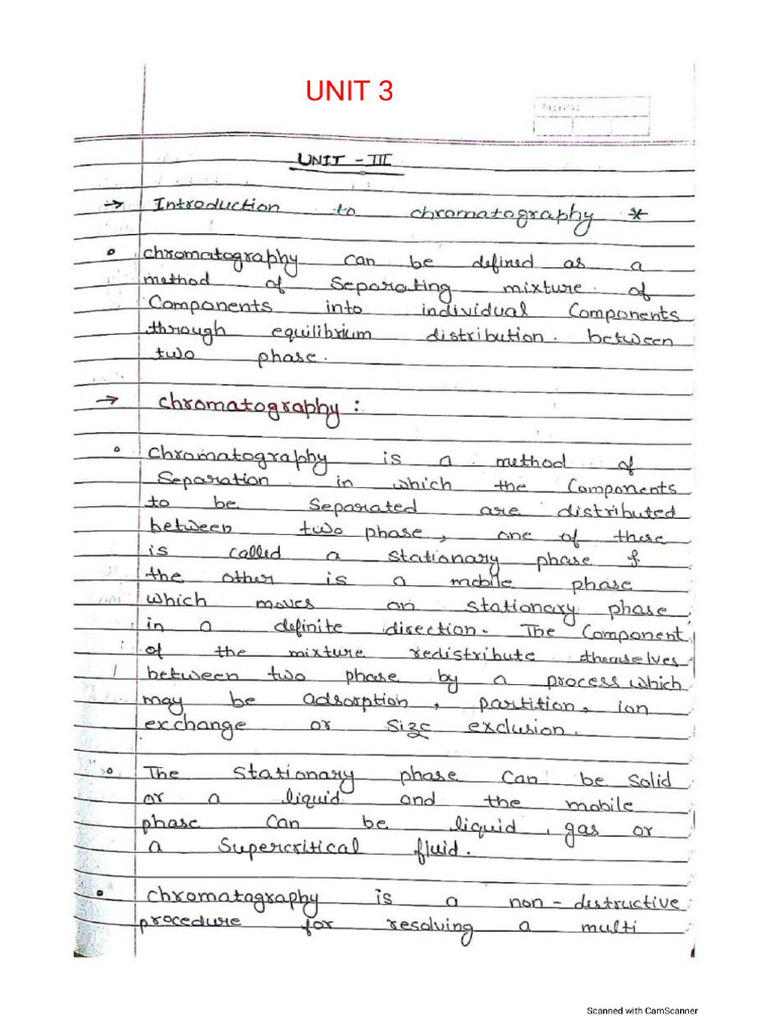 UNIT 3
UNIT - III
→ Introduction to chromatography *
• chromatography can be defined as a
method of Separating mixture of
Components into individual Components
through equilibrium distribution. between
two phase.
→ chromatography :
• chromatography is a method of
Separation in which the Components
to be Separated are distributed
between two phase, one of these
is called a stationary phase &
the other is a mobile phase
which moves on stationary phase
in a definite direction. The Component
of the mixture redistribute themselves
between two phase by a process which
may be adsorption, partition, ion
exchange or size exclusion.
• The stationary phase can be solid
or a liquid and the mobile
phase can be liquid, gas or
a Supercritical fluid.
• chromatography is a non-destructive
procedure for resolving a multi
Scanned with CamScanner